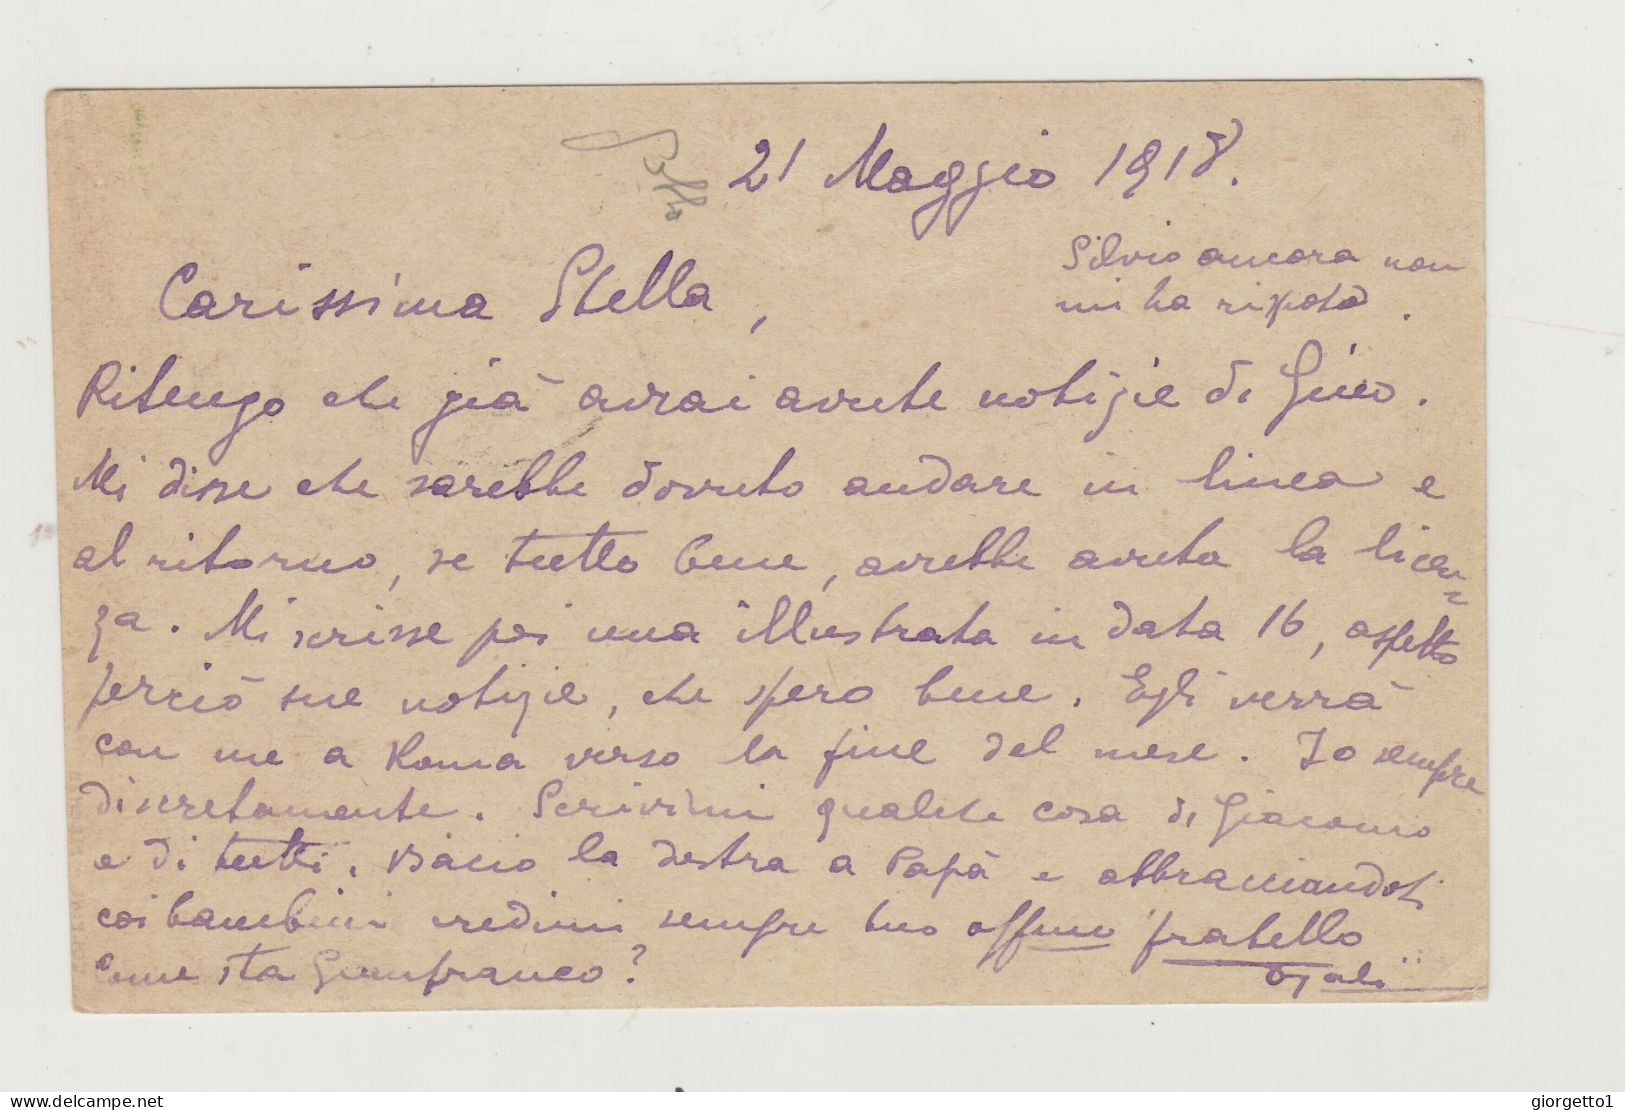 21 Maggio 1918.
Silvio ancora non
mi ha risposto.
Carissima Stella,
Ritengo che già avrai avute notizie di Gino.
Mi disse che sarebbe dovuto andare in linea e
al ritorno, se tutto bene, avrebbe avuta la licen=
za. Mi scrisse poi una illustrata in data 16, aspetto
perciò sue notizie, che spero bene. Egli verrà
con me a Roma verso la fine del mese. Io sempre
discretamente. Scrivimi qualche cosa di Giacomo
e di tutti. Bacio la destra a Papà e abbracciandoti
coi bambini credimi sempre tuo affmo fratello
Come sta Gianfranco?
delcampe.net
giorgetto1